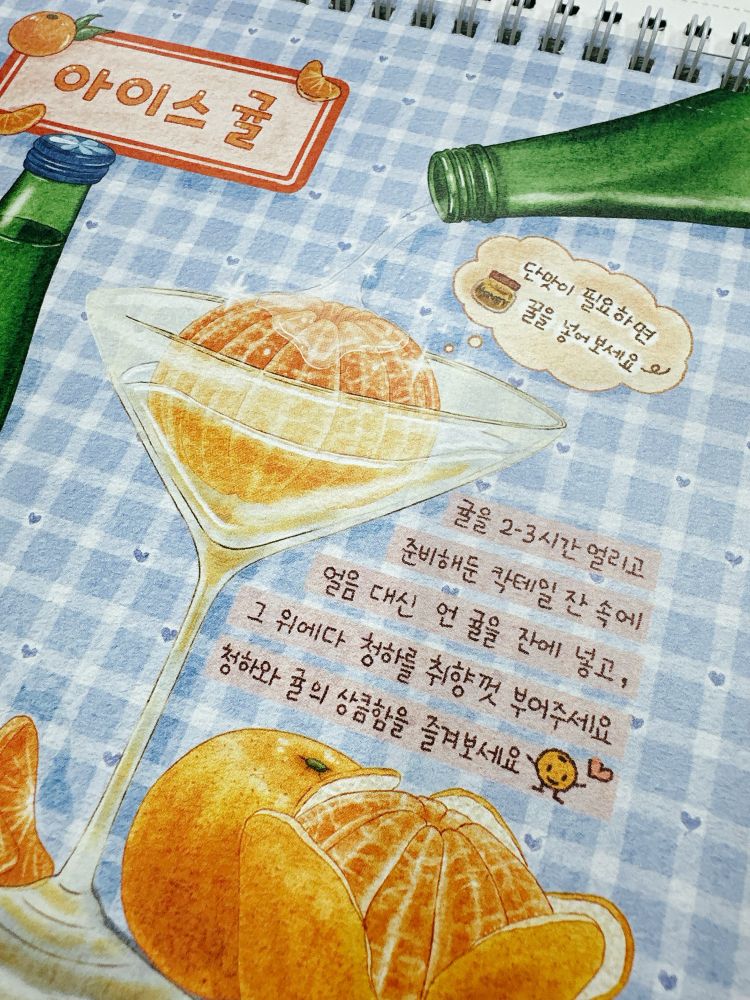 아이스 귤
단맛이 필요하면
HONEY
꿀을 넣어보세요
귤을 2-3시간 얼리고
준비해둔 칵테일 잔 속에
얼음 대신 언 귤을 잔에 넣고,
그 위에다 청하를 취향껏 부어주세요
청하와 귤의 상큼함을 즐겨보세요